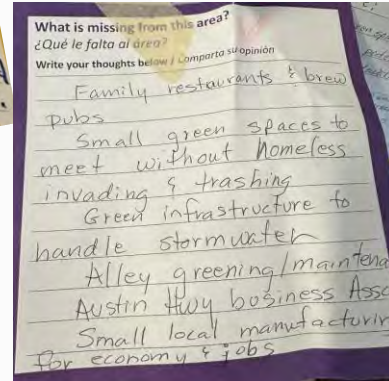 What is missing from this area?
¿Qué le falta al área?
Write your thoughts below / Comparta su opinión
Family restaurants & brew
pubs
Small green spaces to
meet without homeless
invading & trashing
Green infrastructure to
handle stormwater
Alley greening/maintena
Austin Hwy business Asso
Small local manufacturin
for economy & jobs